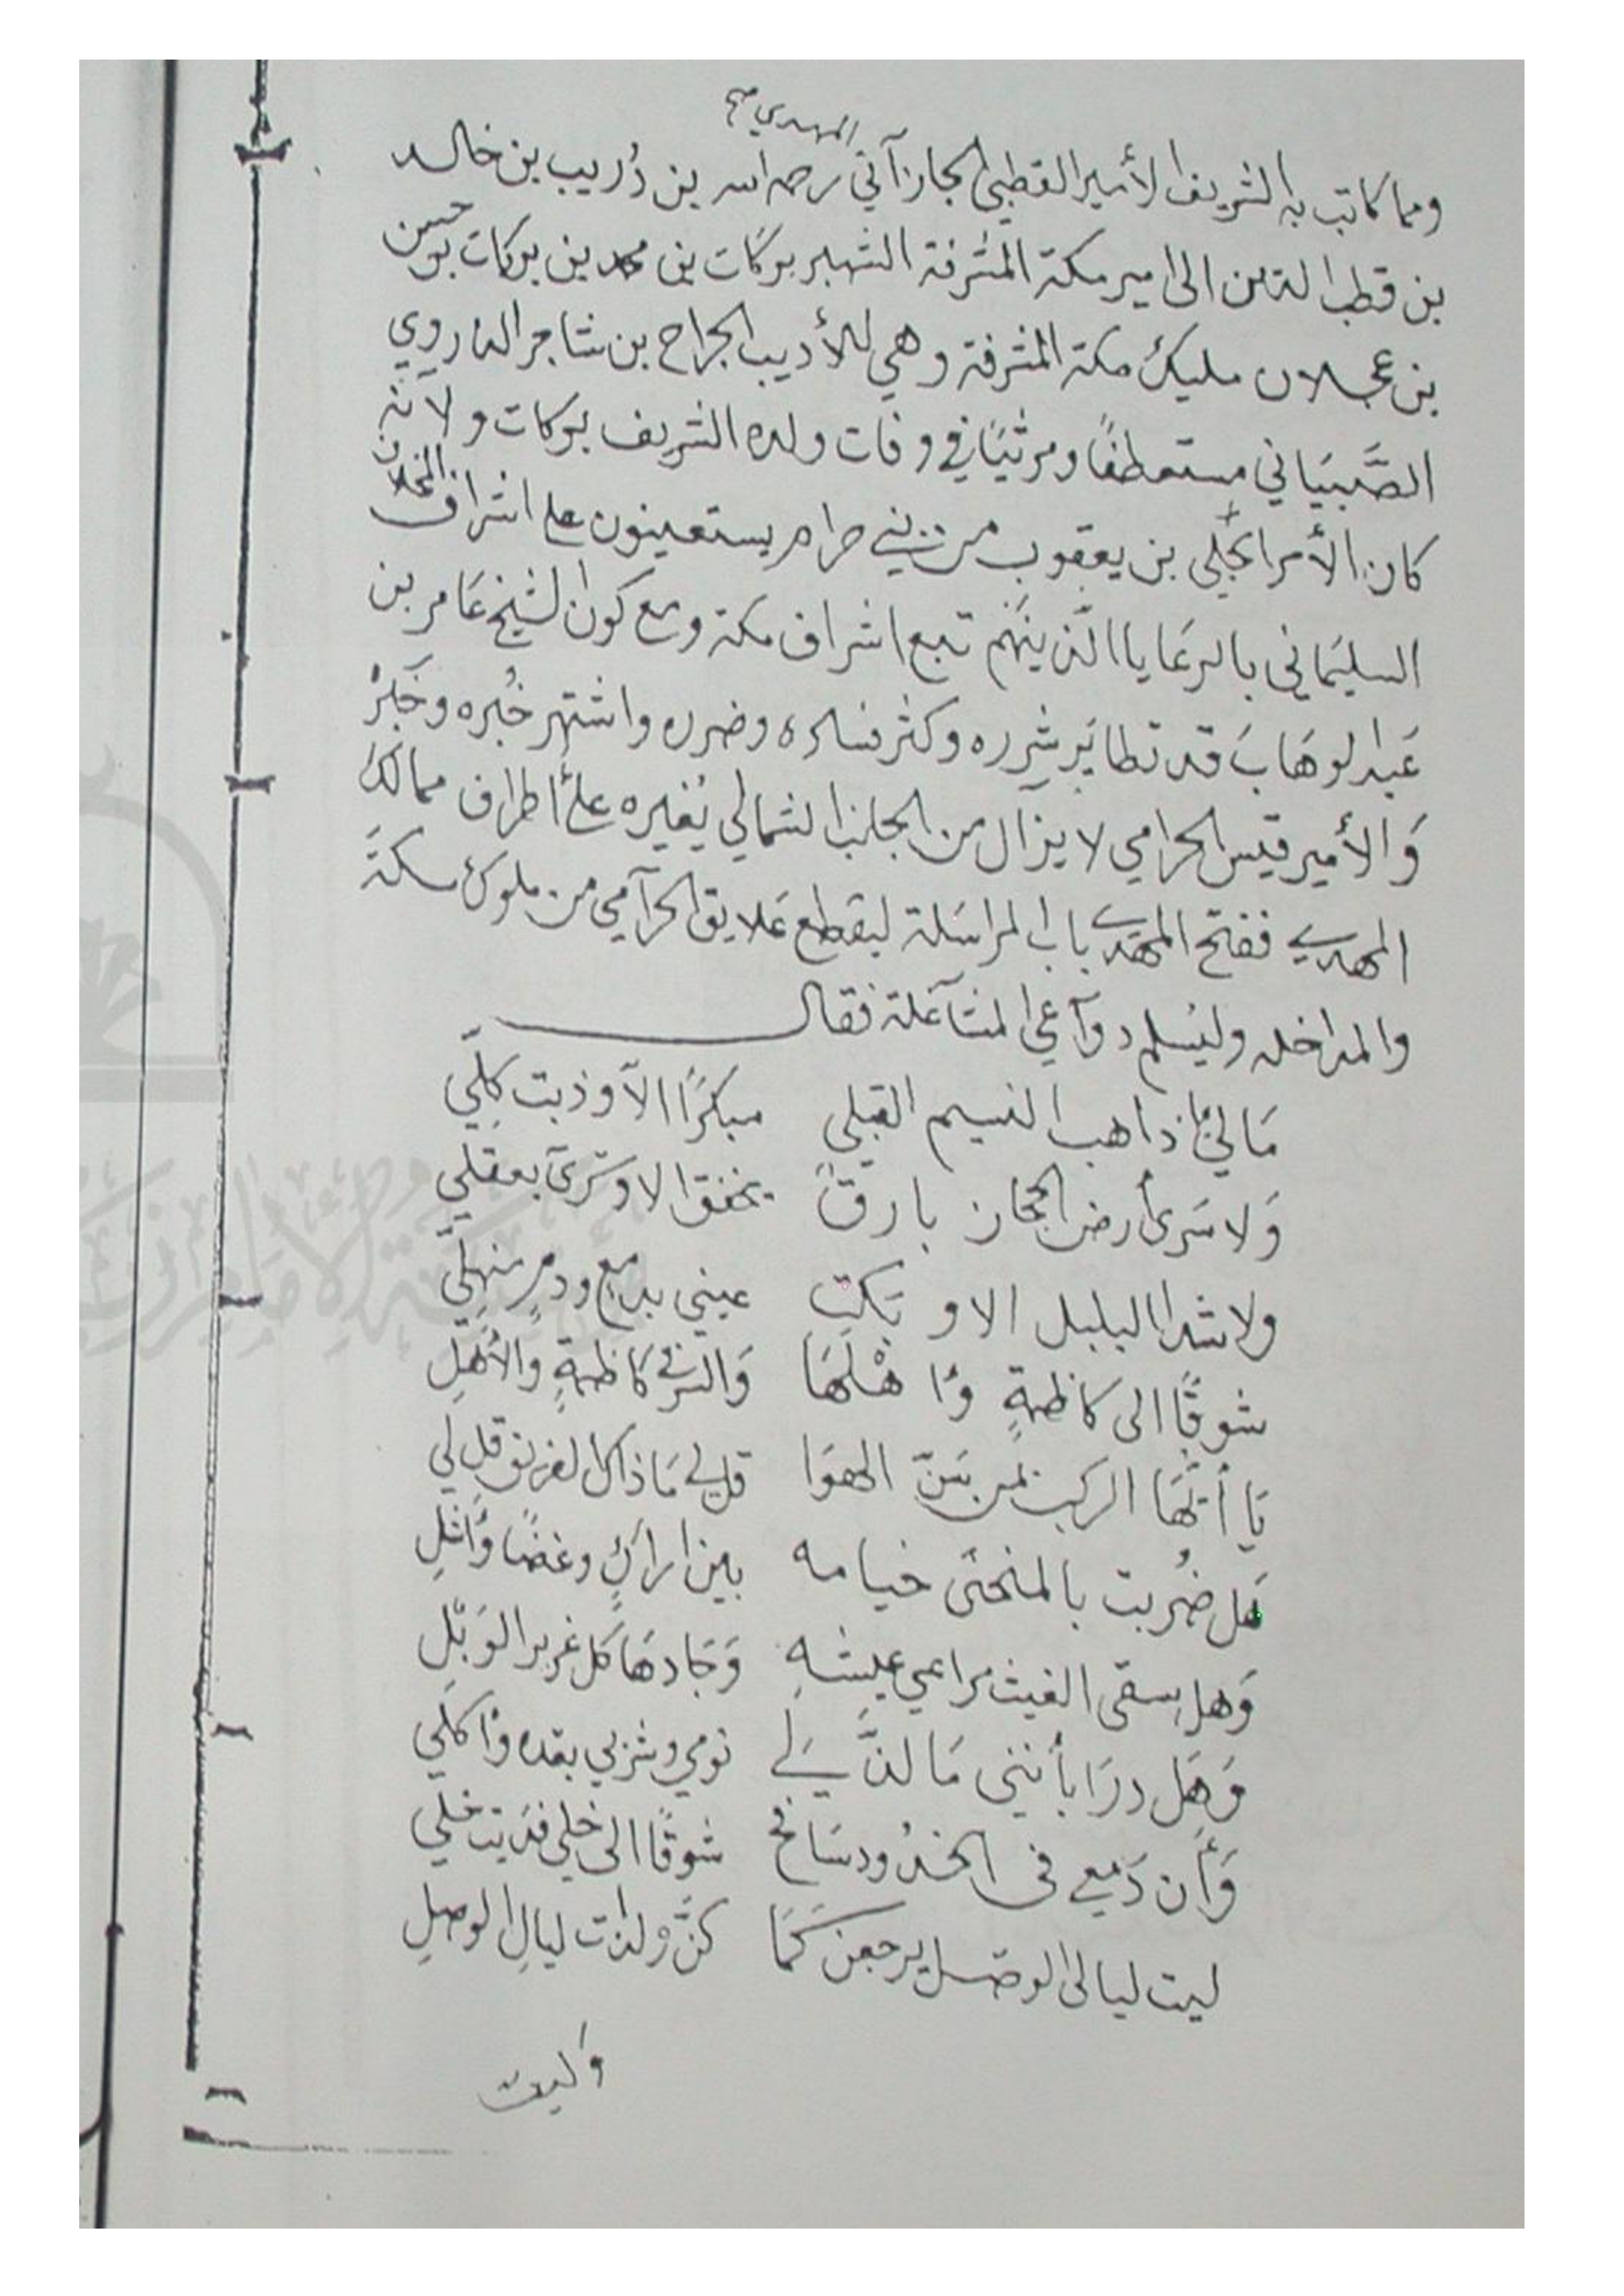 المهدي صح
ومما كاتب به الشريف الأمير القطبي الجازآني رحمه الله بن دُريب بن خالد
بن قطب الدين الى امير مكة المشرفة الشهير بركات بن محمد بن بركات بن حسن
بن عجلان مليك مكة المشرفة وهي للأديب الجراح بن شاجر الذروي
الصَّبيَاني مستعطفًا ومرثيًا في وفات ولده الشريف بركات ولأنه
كان الأمرا كحلي بن يعقوب من بني حرام يستعينون على اشراف المخلاف
السليمَاني بالرعَايا الذينهم تبع اشراف مكة ومع كون الشيخ عَامر بن
عَبد الوهَاب قد تطايَر شرره وكثر فساده وضرره واشتهر خُبره وخَبَرُه
وَالأمير قيس الحرامي لا يزال من الجانب الشمالي يُغيره على أطراف ممالك
المهدي ففتح المهدي باب المراسَلة ليقطع عَلايق الحرآمي من ملوك مكةَ
والمداخله وليُسلم دوآعي المشآغلة فقال
مَا لي إذا هب النسيم القبلي مبكرًا الآ وذبت كلِّي
وَلا سَرى أرض الحجاز بارقً يخفق الا وسَرَى بعقلي
ولا شدا البلبل الا و بَكت عيني بدمعٍ ودمٍ منهلِّي
شوقًا الى كاظمةٍ وأهْلهَا وَالسر في كاظمةٍ والأهلِ
يَا أيُّهَا الركب بمن سَنّ الهوَا قل لي مَا ذاك الفريق قل لي
هَل ضُربت بالمنحنى خيامه بين اراكٍ وغضًا وَأثلِ
وَهل سقى الغيث مراعي عيشهِ وَجَادهَا كل غزير الوَبْلِ
وَهَل درَا بأنني مَا لذَّ لي نومي وشربي بعده وأكلي
وَأن دَمعي في الخدُود سَافح شوقًا الى خلي فدَيت خلّي
ليت ليالي الوصل يرجعن كَمَا كنَّ ولذات ليالِ الوصلِ
وَليت